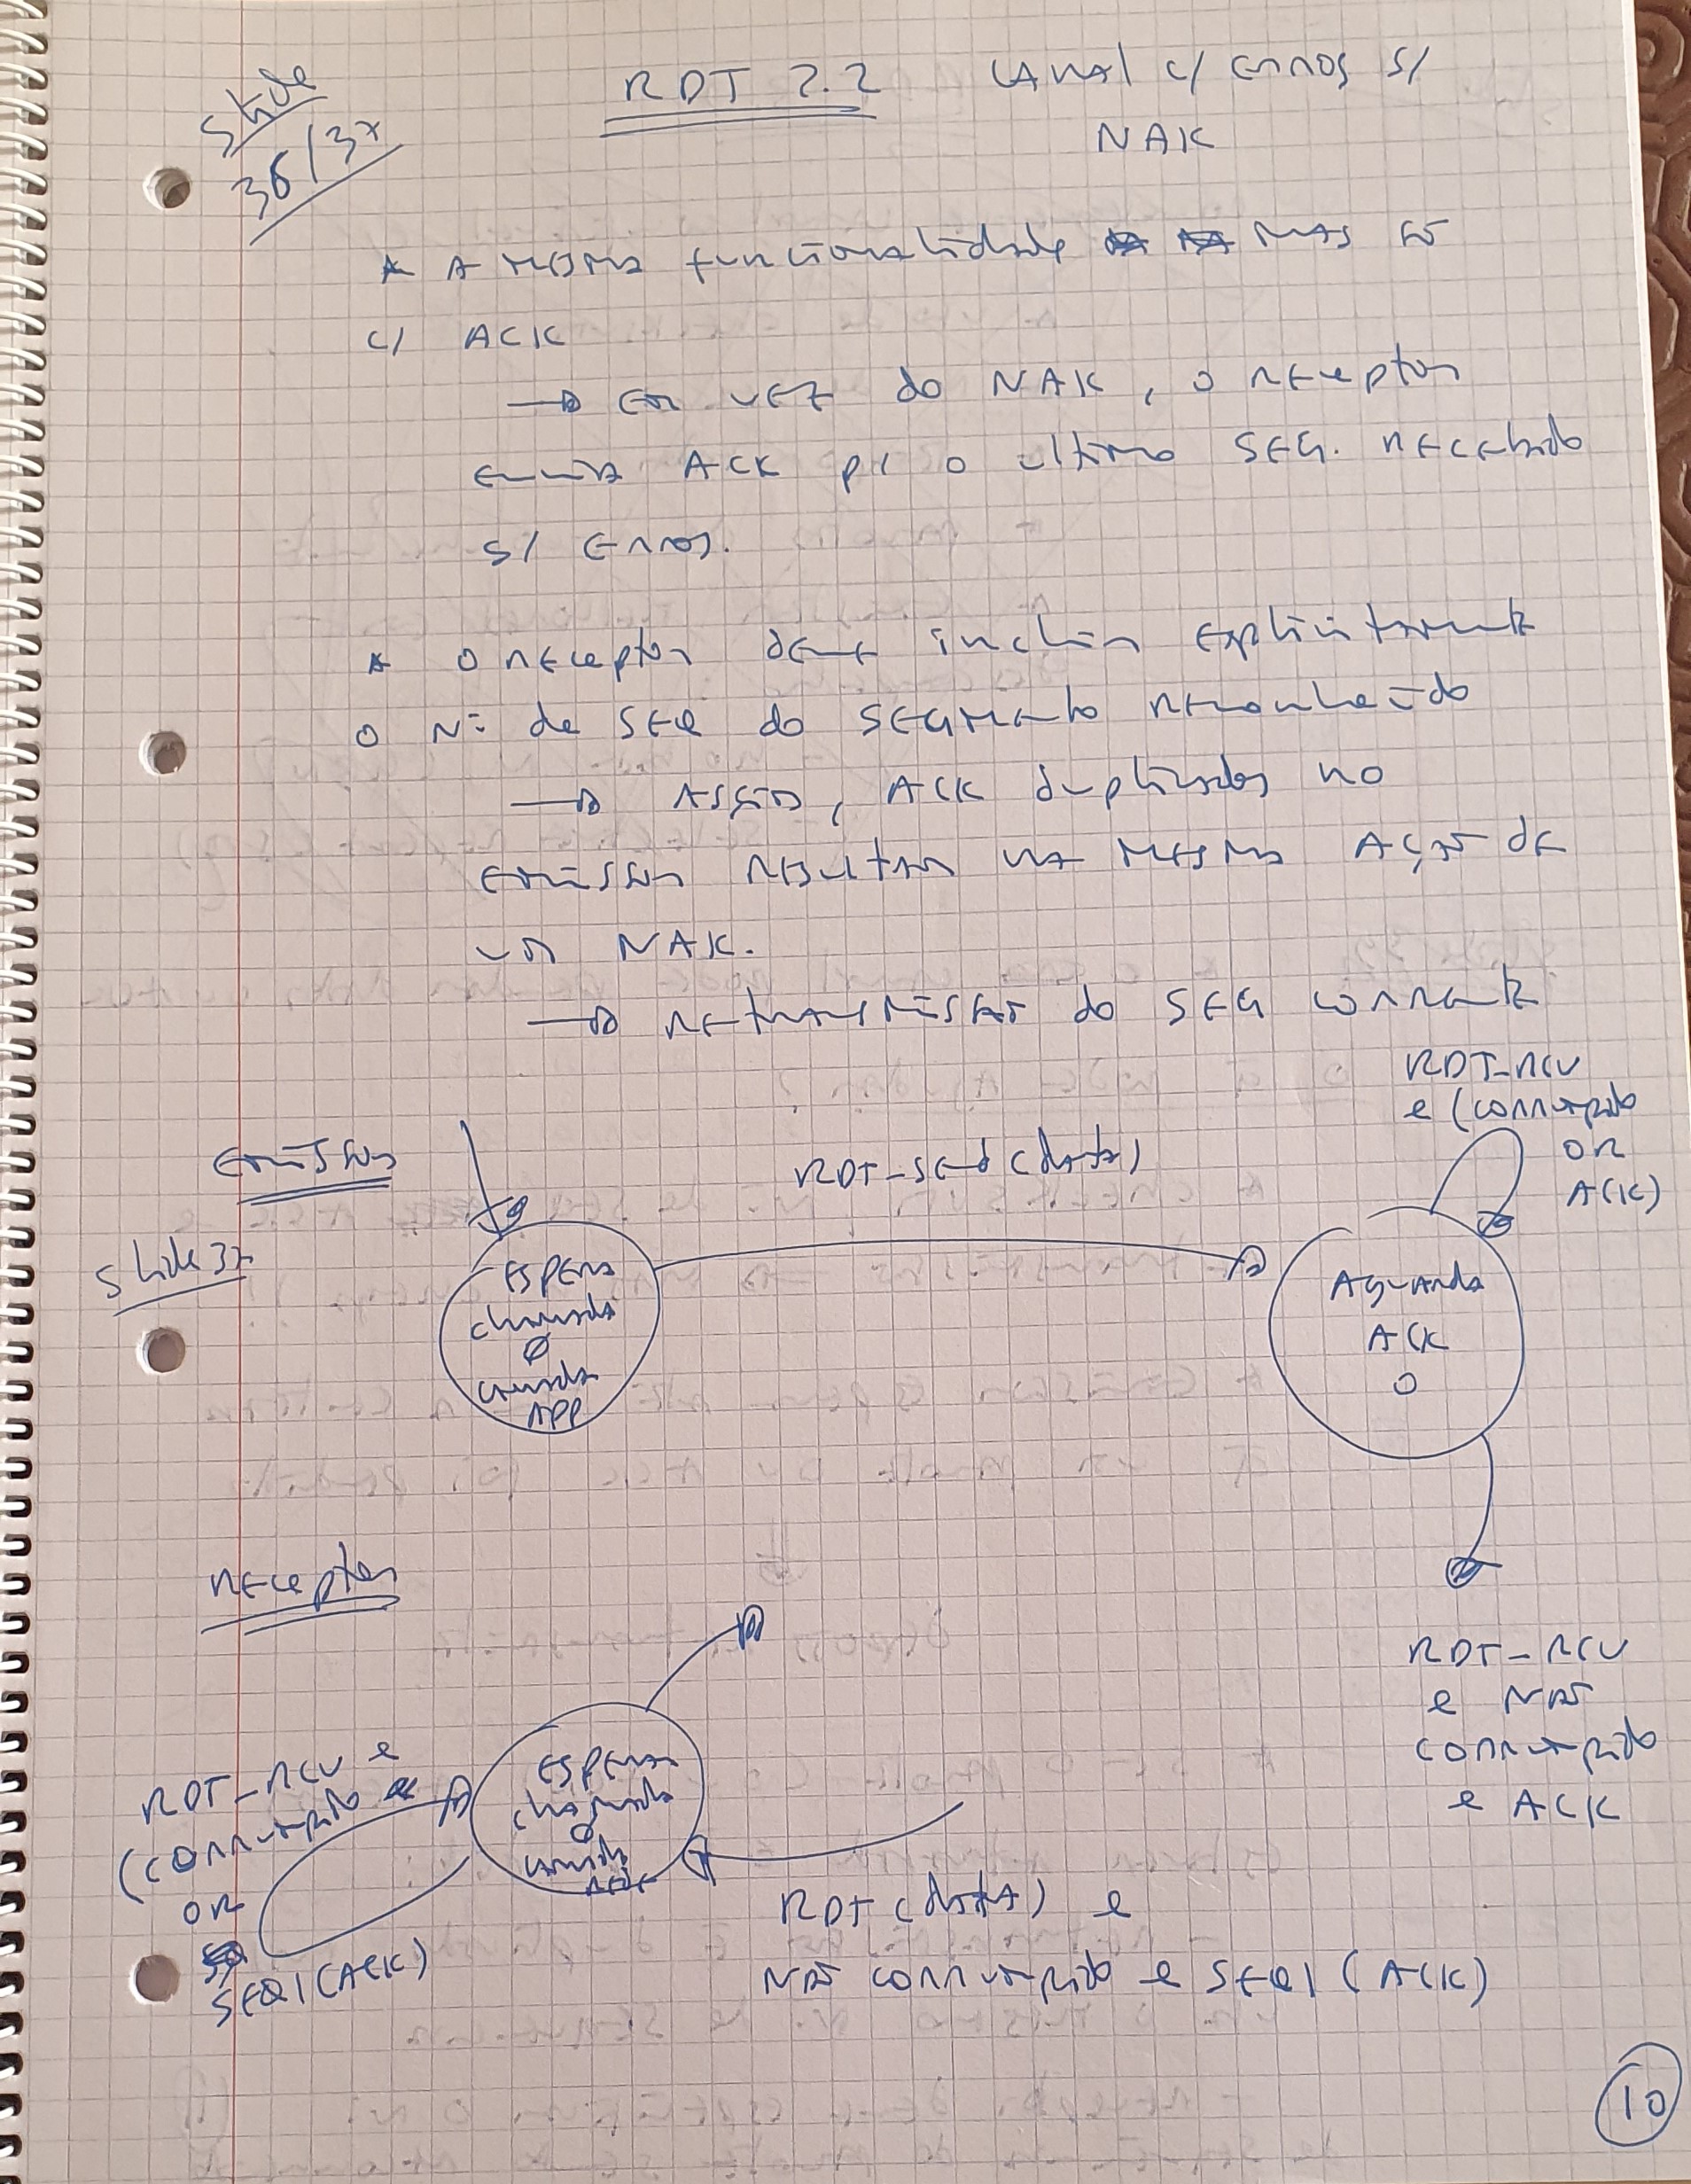 Slide
36/37
RDT 2.2 CANAL c/ ERROS s/
NAK
* A MESMA funcionalidade MAS só
c/ ACK
→ EM VEZ do NAK, o RECEptor
ENVIA ACK p/ o ultimo SEG. RECEbido
s/ ERROS.
* o RECEptor dEVE incluir Explicitamente
o Nº de SEQ do SEGMENTO REconhecido
→ ASSim, ACK duplicados no
EMISSOR RESultam NA MESMA AÇÃO dE
um NAK.
→ REtransMISSÃO do SEG corrente
RDT_RCV
e (corrompido
OR
ACK)
EMISSOR
RDT_SEnd (data)
Slide 37
ESPERA
chamada
0
camada
APP
AguARda
ACK
0
RECEptor
RDT_RCV
e NÃO
corrompido
e ACK
RDT_RCV e
(corrompido
OR
SEQ1(ACK)
ESPERA
chamada
0
camada
REDE
RDT (data) e
NÃO corrompido e SEQ1 (ACK)
10